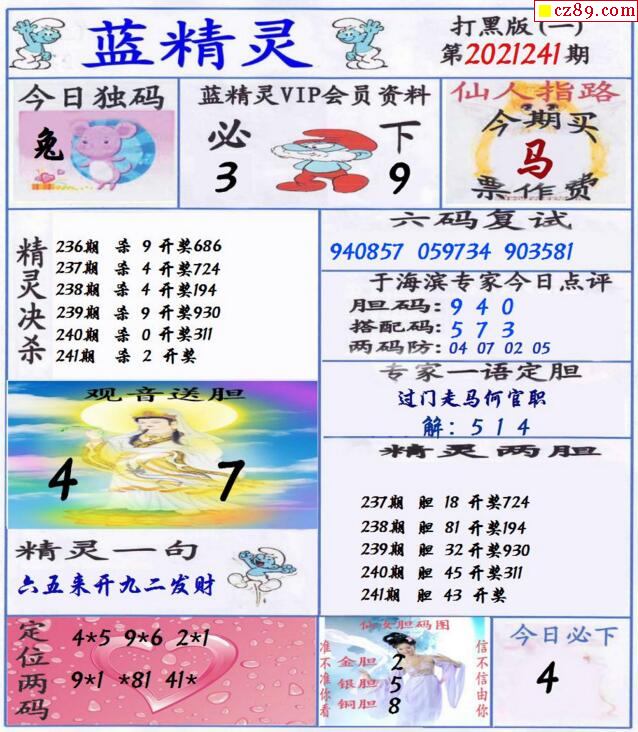 cz89.com
蓝精灵
打黑版(一)
第2021241期
今日独码
兔
蓝精灵VIP会员资料
必 下
3 9
仙人指路
今期买
马
票作费
精灵决杀
236期 柒 9 开奖686
237期 柒 4 开奖724
238期 柒 4 开奖194
239期 柒 9 开奖930
240期 柒 0 开奖311
241期 柒 2 开奖
六码复试
940857 059734 903581
于海滨专家今日点评
胆码: 9 4 0
搭配码: 5 7 3
两码防: 04 07 02 05
专家一语定胆
过门走马何官职
解: 5 1 4
观音送胆
4 7
精灵两胆
237期 胆 18 开奖724
238期 胆 81 开奖194
239期 胆 32 开奖930
240期 胆 45 开奖311
241期 胆 43 开奖
精灵一句
六五来开九二发财
定位两码
4*5 9*6 2*1
9*1 *81 41*
仙女胆码图
准不准你看
金胆 2
银胆 5
铜胆 8
信不信由你
今日必下
4